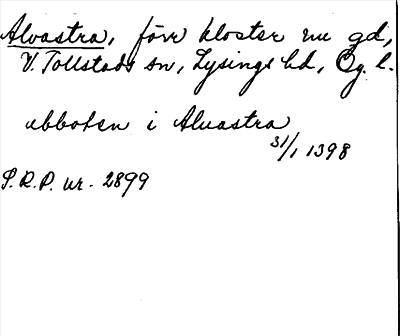 Alvastra, förr kloster nu gd,
V. Tollstads sn, Lysings hd, Ög. l.
abboten i Alvastra
31/1 1398
S.R.P. nr. 2899